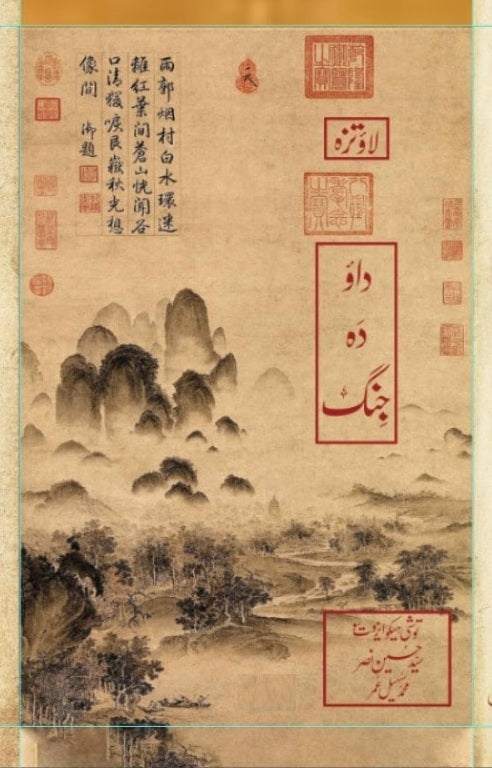 雨郭烟村白水環迷
離紅葉間蒼山恍聞谷
口清猨唳艮嶽秋光想
像間 御題
لاؤتزہ
داؤ
دَہ
جِنگ
توشی ہیکو ایزوتسو
سیّد حسین نصر
محمد سہیل عمر